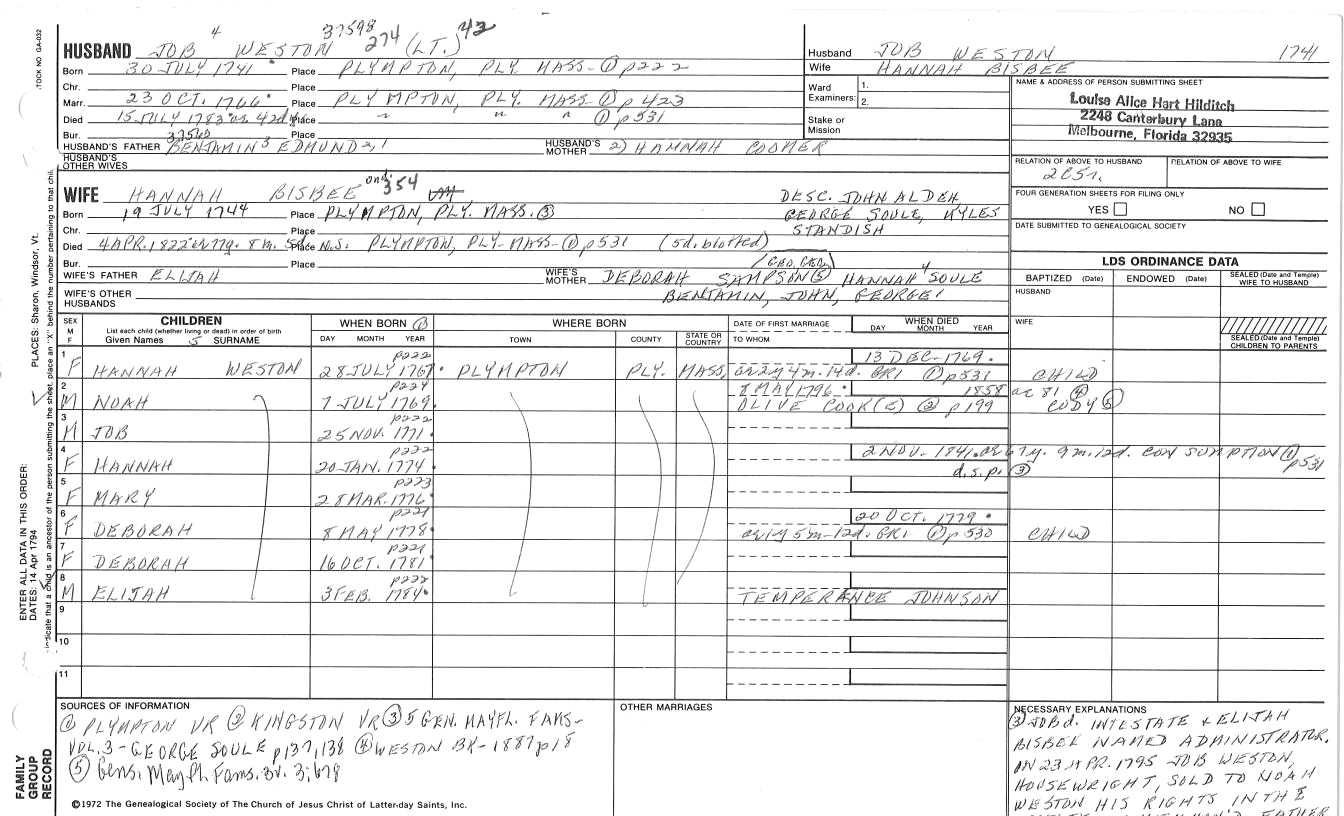 4 37598 274 42
HUSBAND JOB WESTON (LT.)
Born 30 JULY 1741 Place PLYMPTON, PLY. MASS-① p222
Chr. Place
Marr. 23 OCT. 1766 Place PLYMPTON, PLY. MASS-① p423
Died 15 JULY 1783 Place " " " ① p531
Bur. Place
HUSBAND'S FATHER BENJAMIN3 EDMUND2,1 HUSBAND'S MOTHER 2) HANNAH COOMER
HUSBAND'S OTHER WIVES
Husband JOB WESTON 1741
Wife HANNAH BISBEE
Ward Examiners: 1.
2.
Stake or Mission
NAME & ADDRESS OF PERSON SUBMITTING SHEET
Louise Alice Hart Hilditch
2248 Canterbury Lane
Melbourne, Florida 32935
RELATION OF ABOVE TO HUSBAND RELATION OF ABOVE TO WIFE
FOUR GENERATION SHEETS FOR FILING ONLY
YES NO
DATE SUBMITTED TO GENEALOGICAL SOCIETY
WIFE HANNAH BISBEE 354
Born 19 JULY 1744 Place PLYMPTON, PLY. MASS. ③
Chr. Place
Died 4 APR. 1822 Place N.S. PLYMPTON, PLY-MASS-① p531 (5d. blotted)
Bur. Place
WIFE'S FATHER ELIJAH WIFE'S MOTHER DEBORAH SAMPSON ⑤ HANNAH4 SOULE
BENJAMIN, JOHN, GEORGE1
WIFE'S OTHER HUSBANDS
DESC. JOHN ALDEN
GEORGE SOULE, MYLES
STANDISH
LDS ORDINANCE DATA
BAPTIZED (Date) ENDOWED (Date) SEALED (Date and Temple) WIFE TO HUSBAND
HUSBAND
WIFE
SEALED (Date and Temple) CHILDREN TO PARENTS
SEX M F
CHILDREN
List each child (whether living or dead) in order of birth
Given Names 5 SURNAME
WHEN BORN ①
DAY MONTH YEAR
WHERE BORN
TOWN COUNTY STATE OR COUNTRY
DATE OF FIRST MARRIAGE
TO WHOM
WHEN DIED
DAY MONTH YEAR
1 p222 13 DEC-1769.
F HANNAH WESTON 28 JULY 1767 PLYMPTON PLY. MASS, ae 2y 4m. 14d. GR1 ① p531 CHILD
2 p224 8 MAY 1796. 1858 ae 81 ④
M NOAH 7 JULY 1769 OLIVE COOK(E) ② p199 CODY ⑤
3 p222
M JOB 25 NOV. 1771
4 p222 2 NOV. 1841. ae 67y. 9m. 12d. CONSUMPTION ① p531
F HANNAH 20 JAN. 1774 d.s.p. ③
5 p223
F MARY 28 MAR. 1776
6 p221 20 OCT. 1779
F DEBORAH 8 MAY 1778 ae 1y 5m-12d. GR1 ① p530 CHILD
7 p221
F DEBORAH 16 OCT. 1781
8 p222
M ELIJAH 3 FEB. 1784 TEMPERANCE JOHNSON
9
10
11
SOURCES OF INFORMATION
① PLYMPTON VR ② KINGSTON VR ③ 5 GEN. MAYFL. FAMS-
VOL. 3-GEORGE SOULE p137,138 ④ WESTON BK-1887 p18
⑤ Gens. Mayfl. Fams. 3v. 3:678
OTHER MARRIAGES
NECESSARY EXPLANATIONS
③ JOB d. INTESTATE & ELIJAH
BISBEE NAMED ADMINISTRATOR.
ON 23 APR. 1795 JOB WESTON,
HOUSEWRIGHT, SOLD TO NOAH
WESTON HIS RIGHTS IN THE
©1972 The Genealogical Society of The Church of Jesus Christ of Latter-day Saints, Inc.
STOCK NO GA-032
PLACES: Sharon, Windsor, Vt.
ENTER ALL DATA IN THIS ORDER:
DATES: 14 Apr 1794
indicate that a child is an ancestor of the person submitting the sheet, place an "X" behind the number pertaining to that chil.
FAMILY
GROUP
RECORD